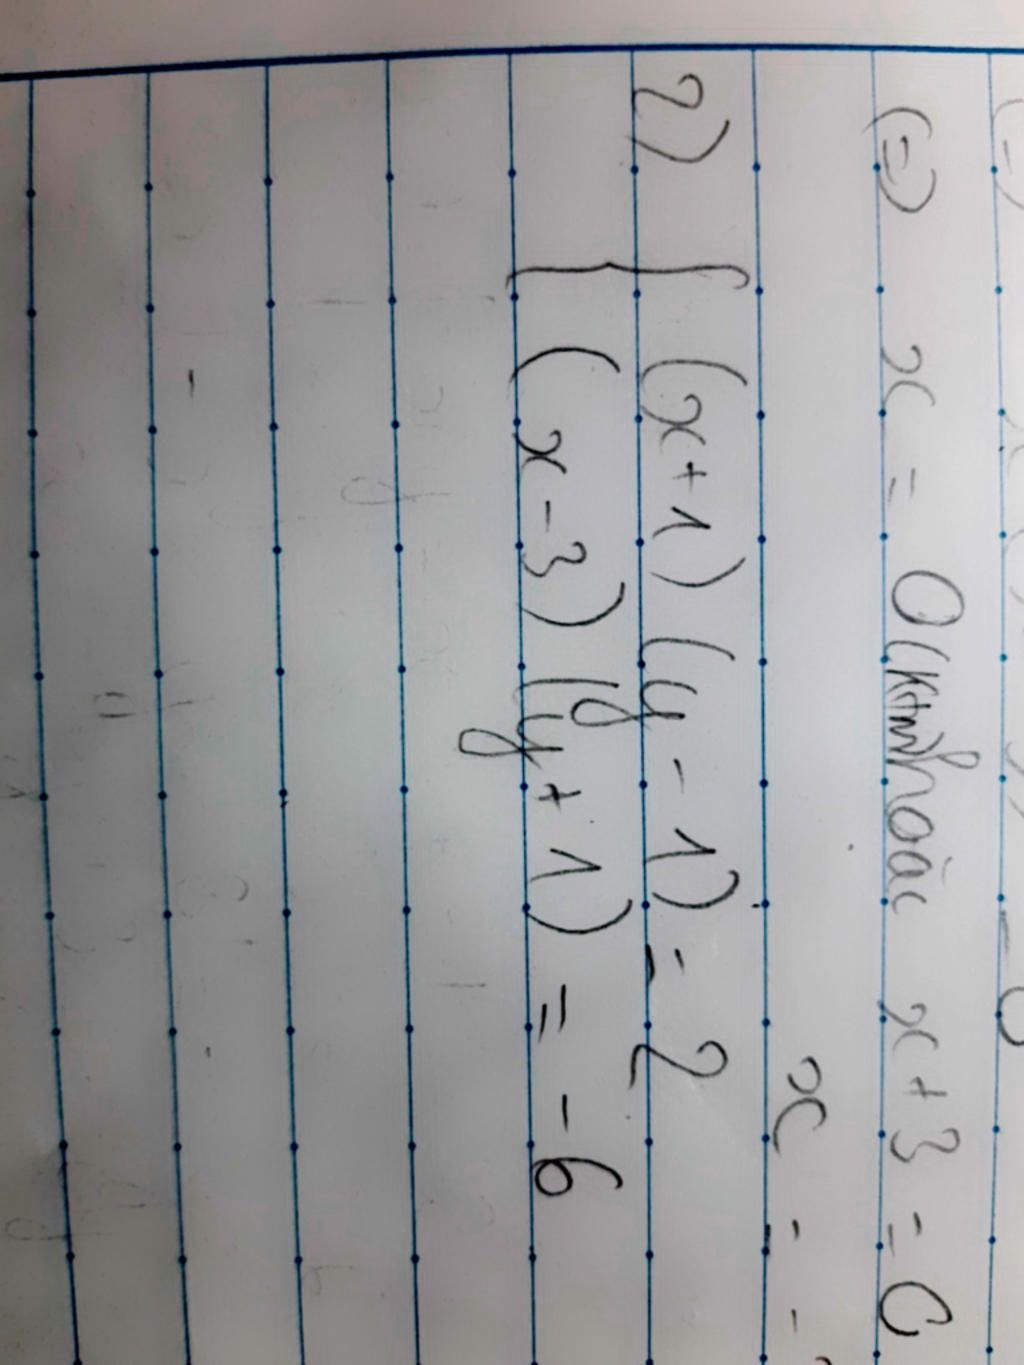 (=) x = 0 (Ktm) hoặc x + 3 = 0
x = -
2) { (x + 1) (y - 1) = 2
(x - 3) (y + 1) = - 6